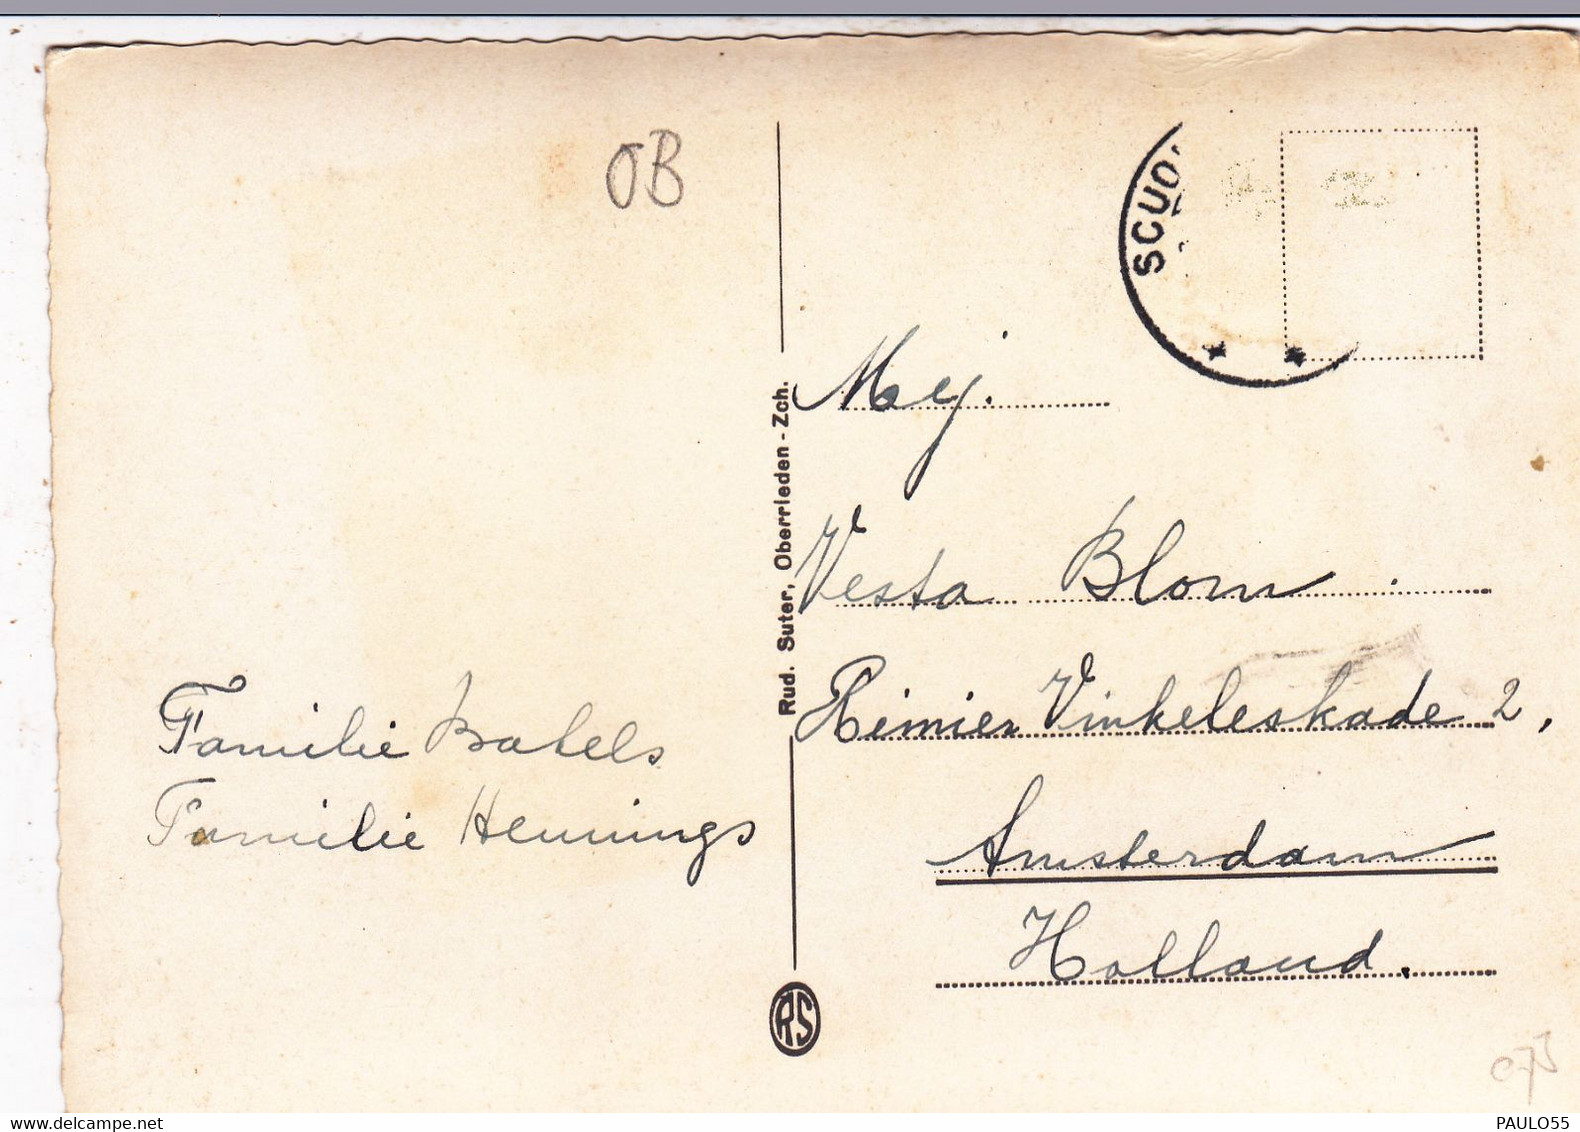 OB
SCUO
Rud. Suter, Oberrieden - Zch.
Mej.
Vesta Blom
Reinier Vinkeleskade 2,
Amsterdam
Holland.
Familie Bakels
Familie Hennings
RS
PAULO55